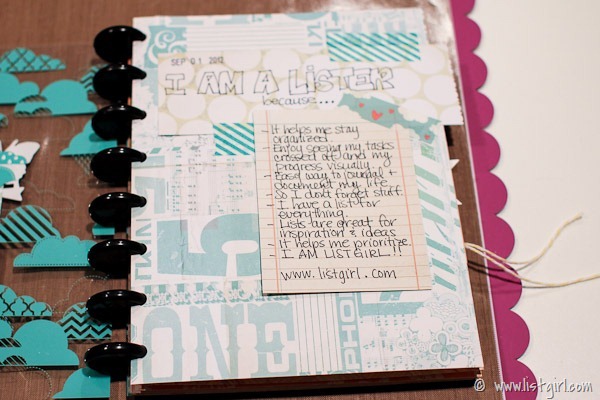 SEP 01 2012
I AM A LISTER
because...
- It helps me stay
organized.
- Enjoy seeing my tasks
crossed off and my
progress visually.
- Easy way to journal +
document my life
- So I don't forget stuff.
- I have a list for
everything.
- Lists are great for
inspiration & ideas
- It helps me prioritize.
- I AM LISTGIRL!!
www.listgirl.com
5
ONE
PHO
© www.listgirl.com